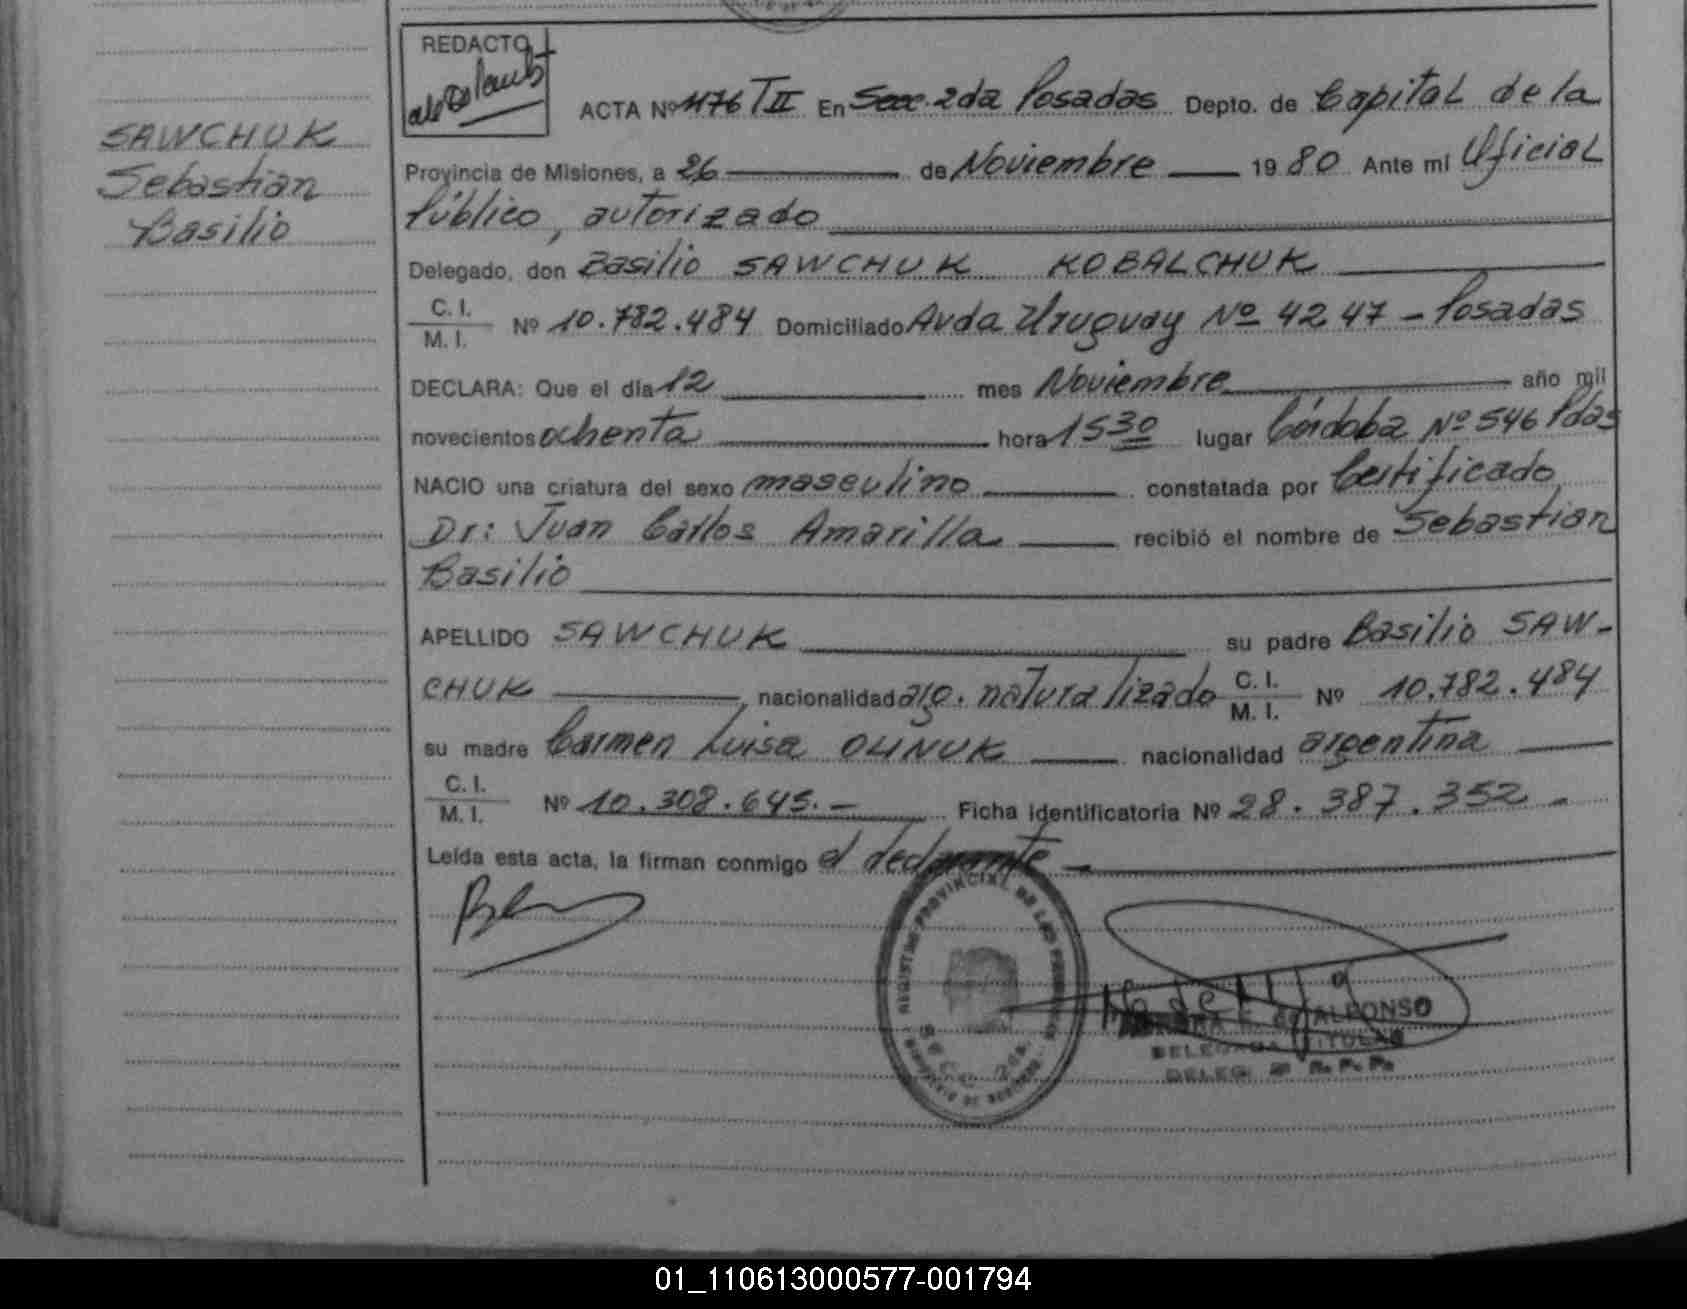 REDACTO
ACTA Nº 1176 T II En Secc. 2da Posadas Depto. de Capital de la
SAWCHUK
Sebastian
Basilio
Provincia de Misiones, a 26 de Noviembre 1980 Ante mi Oficial
Público, autorizado
Delegado, don Basilio SAWCHUK KOBALCHUK
C. I.
M. I. Nº 10.782.484 Domiciliado Avda Uruguay Nº 4247 - Posadas
DECLARA: Que el día 12 mes Noviembre año mil
novecientos ochenta hora 1530 lugar Córdoba Nº 546 Pdas
NACIO una criatura del sexo masculino constatada por Certificado,
Dr: Juan Carlos Amarilla recibió el nombre de Sebastian
Basilio
APELLIDO SAWCHUK su padre Basilio SAW-
CHUK, nacionalidad arg. naturalizado C. I. M. I. Nº 10.782.484
su madre Carmen Luisa OLINUK nacionalidad argentina
C. I.
M. I. Nº 10.308.645.- Ficha identificatoria Nº 28.387.352 -
Leída esta acta, la firman conmigo el declarante
REGISTRO PROVINCIAL DE LAS PERSONAS
SECC. 2da.
ALFONSO
DELEGADA TITULAR
DELEG. 2ª R. P. P.
01_110613000577-001794